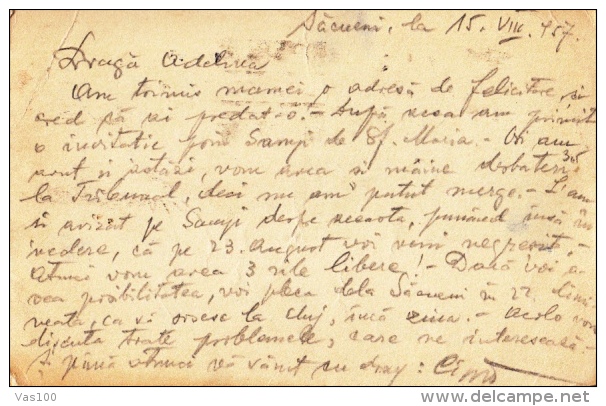 Săcueni, la 15. VIII. 957.
Dragă Adelina
Am trimis mamei o adresă de felicitare, și
cred că ai predat-o. - După aceea am primit
o invitație prin Sampi de Sf. Maria. - Oi am
avut și astăzi, vom avea și mâine desbateri
la Tribunal, deci nu am putut merge. - L'am
și avizat pe Sampi despre aceasta, punând însă în
vedere, că pe 23. August voi veni negreșit, -
atunci vom avea 3 zile libere! - Dacă voi a-
vea posibilitatea, voi pleca dela Săcueni în 22. dimi
neața, ca să sosesc la Cluj, încă ziua. - Acolo vom
discuta toate problemele, care ne interesează. -
Și până atunci vă sărut cu drag:
Vas100
delcampe.net